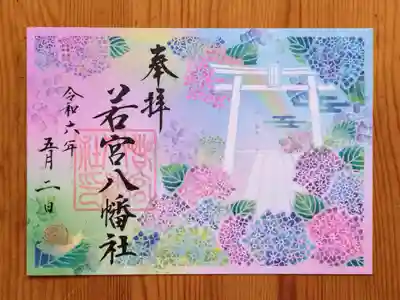 奉拝
若宮八幡社
令和六年
五月二日